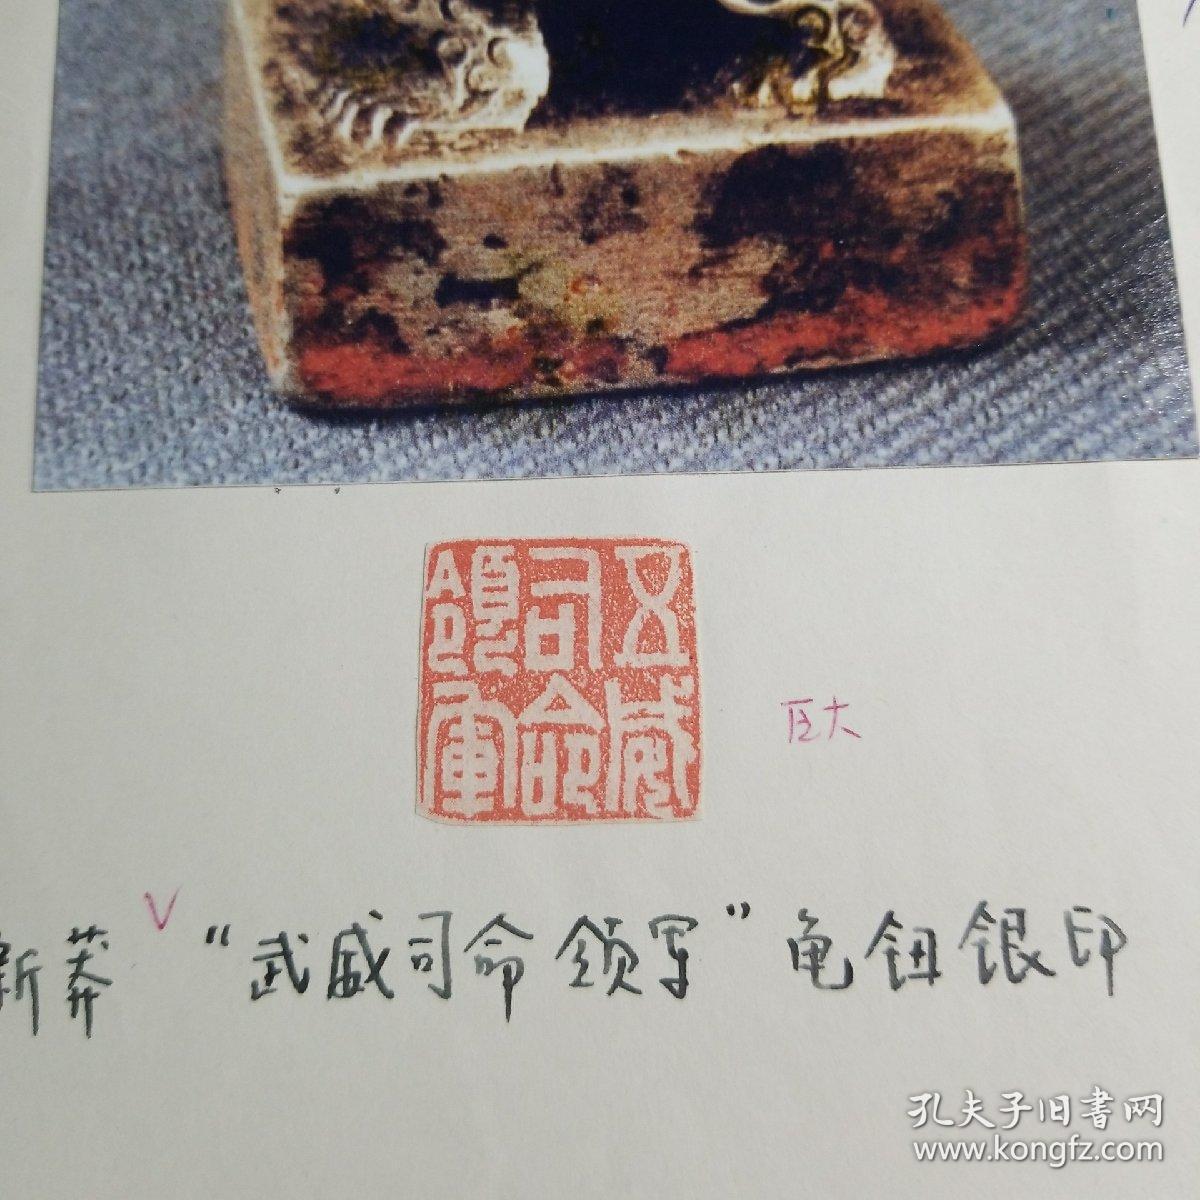 五威
司命
領軍
巨大
新莽 "武威司命领军" 龟钮银印
孔夫子旧书网
www.kongfz.com